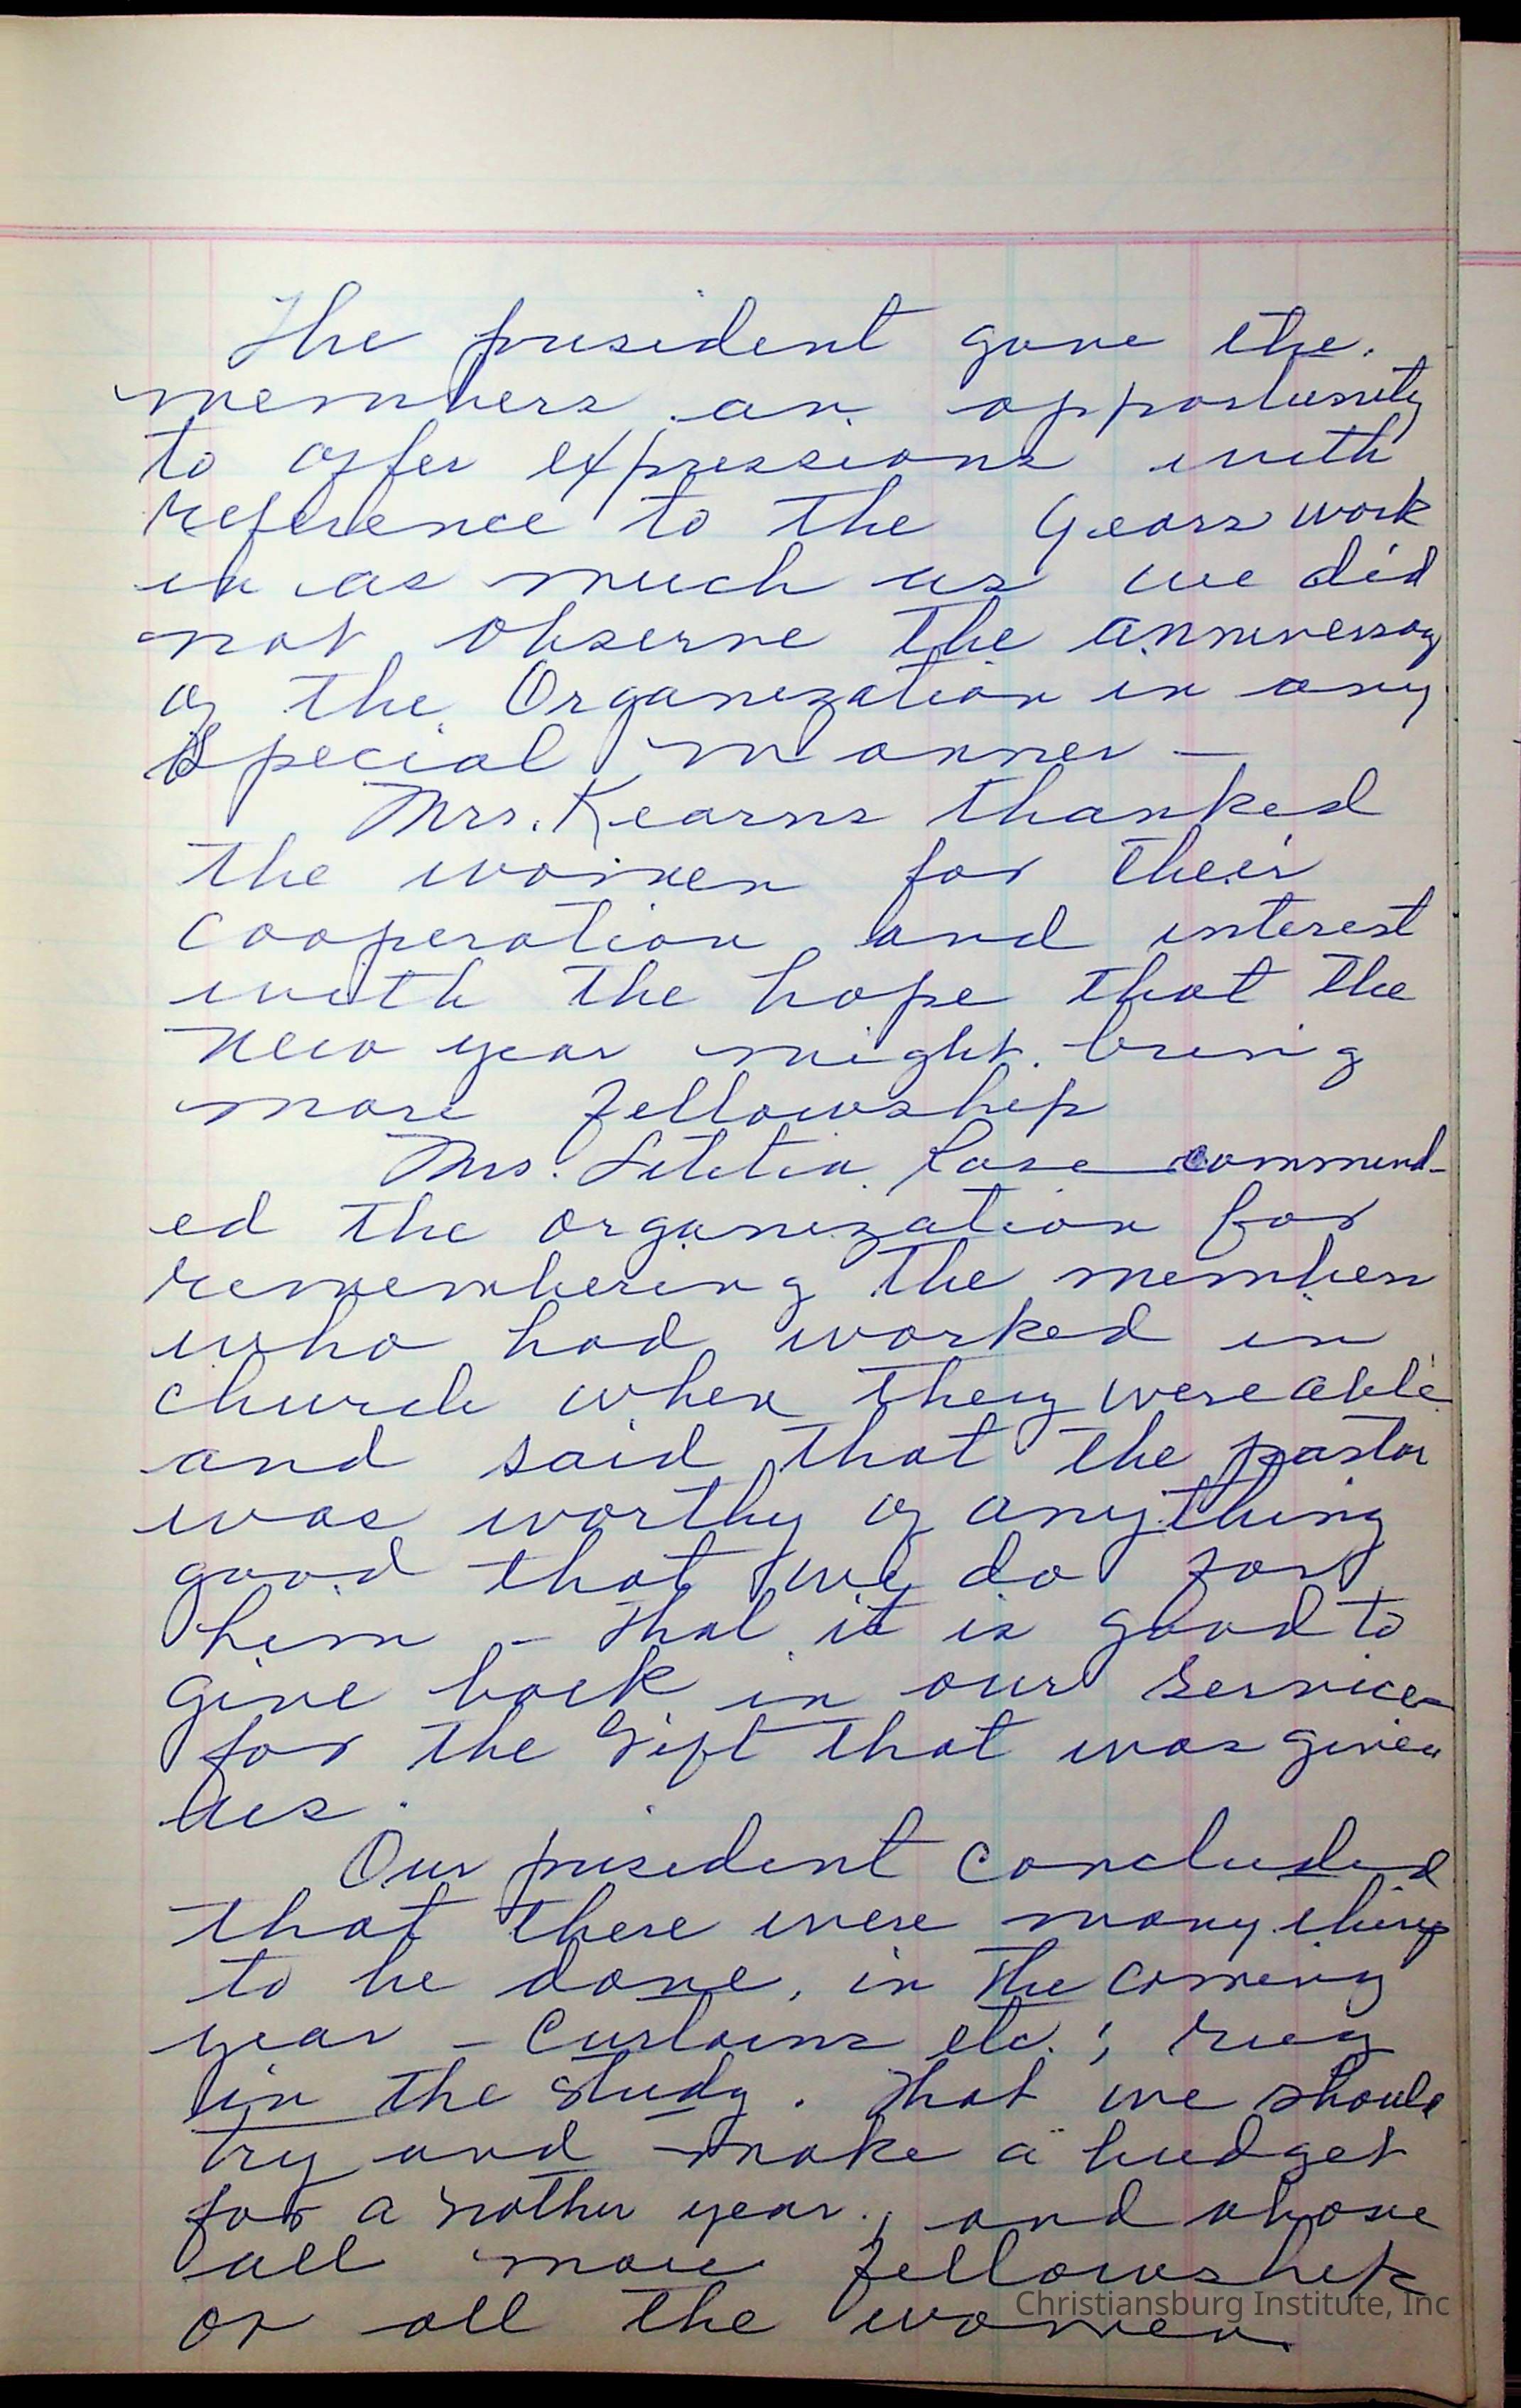 The president gave the.
members an opportunity
to offer expressions with
reference to the years work
in as much as we did
not observe the anniversay
of the Organization in any
special manner —
Mrs. Kearns thanked
the women for their
cooperation and interest
with the hope that the
New year might bring
more fellowship
Mrs. Letitia commend-
ed the organization for
remembering the members
who had worked in
church when they were able
and said that the pastor
was worthy of anything
good that we do for
him – that it is good to
give back in our services
for the gift that was given
us.
Our president concluded
that there were many things
to be done, in the coming
year – Curtains etc.; rug
in the study. That we should
try and make a budget
for a nother year., and above
all more fellowship
of all the women
Christiansburg Institute, Inc